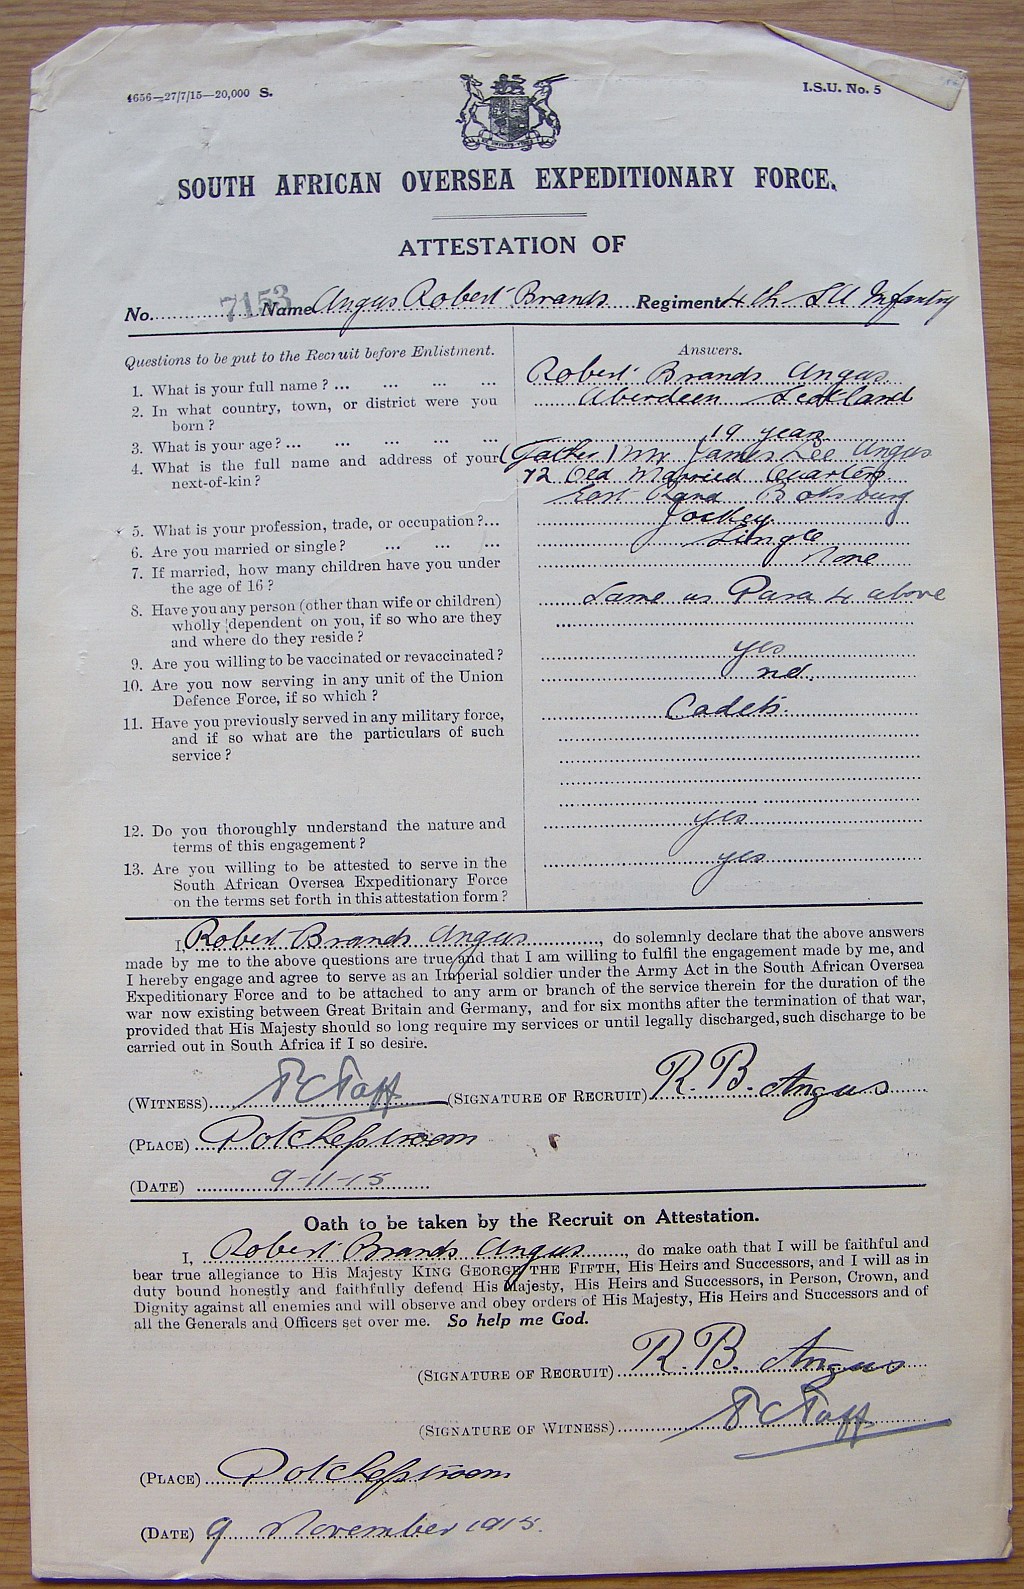 4656—27/7/15—20,000 S.
I.S.U. No. 5
SOUTH AFRICAN OVERSEA EXPEDITIONARY FORCE.
ATTESTATION OF
No. 7153 Name Angus Robert Brands Regiment 4th SA Infantry
Questions to be put to the Recruit before Enlistment.
Answers.
1. What is your full name? ... ... ... ...
Robert Brands Angus
2. In what country, town, or district were you
born?
Aberdeen Scotland
3. What is your age? ... ... ... ... ...
19 years
4. What is the full name and address of your
next-of-kin?
(Father) Mr. James Lee Angus
72 Old Married Quarters
East Rand Boksburg
5. What is your profession, trade, or occupation?...
Jockey
6. Are you married or single? ... ... ...
Single
7. If married, how many children have you under
the age of 16?
None
8. Have you any person (other than wife or children)
wholly dependent on you, if so who are they
and where do they reside?
Same as Para 4 above
9. Are you willing to be vaccinated or revaccinated?
yes
10. Are you now serving in any unit of the Union
Defence Force, if so which?
no.
11. Have you previously served in any military force,
and if so what are the particulars of such
service?
Cadets.
12. Do you thoroughly understand the nature and
terms of this engagement?
yes
13. Are you willing to be attested to serve in the
South African Oversea Expeditionary Force
on the terms set forth in this attestation form?
yes
I, Robert Brands Angus, do solemnly declare that the above answers
made by me to the above questions are true and that I am willing to fulfil the engagement made by me, and
I hereby engage and agree to serve as an Imperial soldier under the Army Act in the South African Oversea
Expeditionary Force and to be attached to any arm or branch of the service therein for the duration of the
war now existing between Great Britain and Germany, and for six months after the termination of that war,
provided that His Majesty should so long require my services or until legally discharged, such discharge to be
carried out in South Africa if I so desire.
(WITNESS) (SIGNATURE OF RECRUIT) R. B. Angus
(PLACE) Potchefstroom
(DATE) 9-11-15
Oath to be taken by the Recruit on Attestation.
I, Robert Brands Angus, do make oath that I will be faithful and
bear true allegiance to His Majesty KING GEORGE THE FIFTH, His Heirs and Successors, and I will as in
duty bound honestly and faithfully defend His Majesty, His Heirs and Successors, in Person, Crown, and
Dignity against all enemies and will observe and obey orders of His Majesty, His Heirs and Successors and of
all the Generals and Officers set over me. So help me God.
(SIGNATURE OF RECRUIT) R. B. Angus
(SIGNATURE OF WITNESS)
(PLACE) Potchefstroom
(DATE) 9 November 1915.